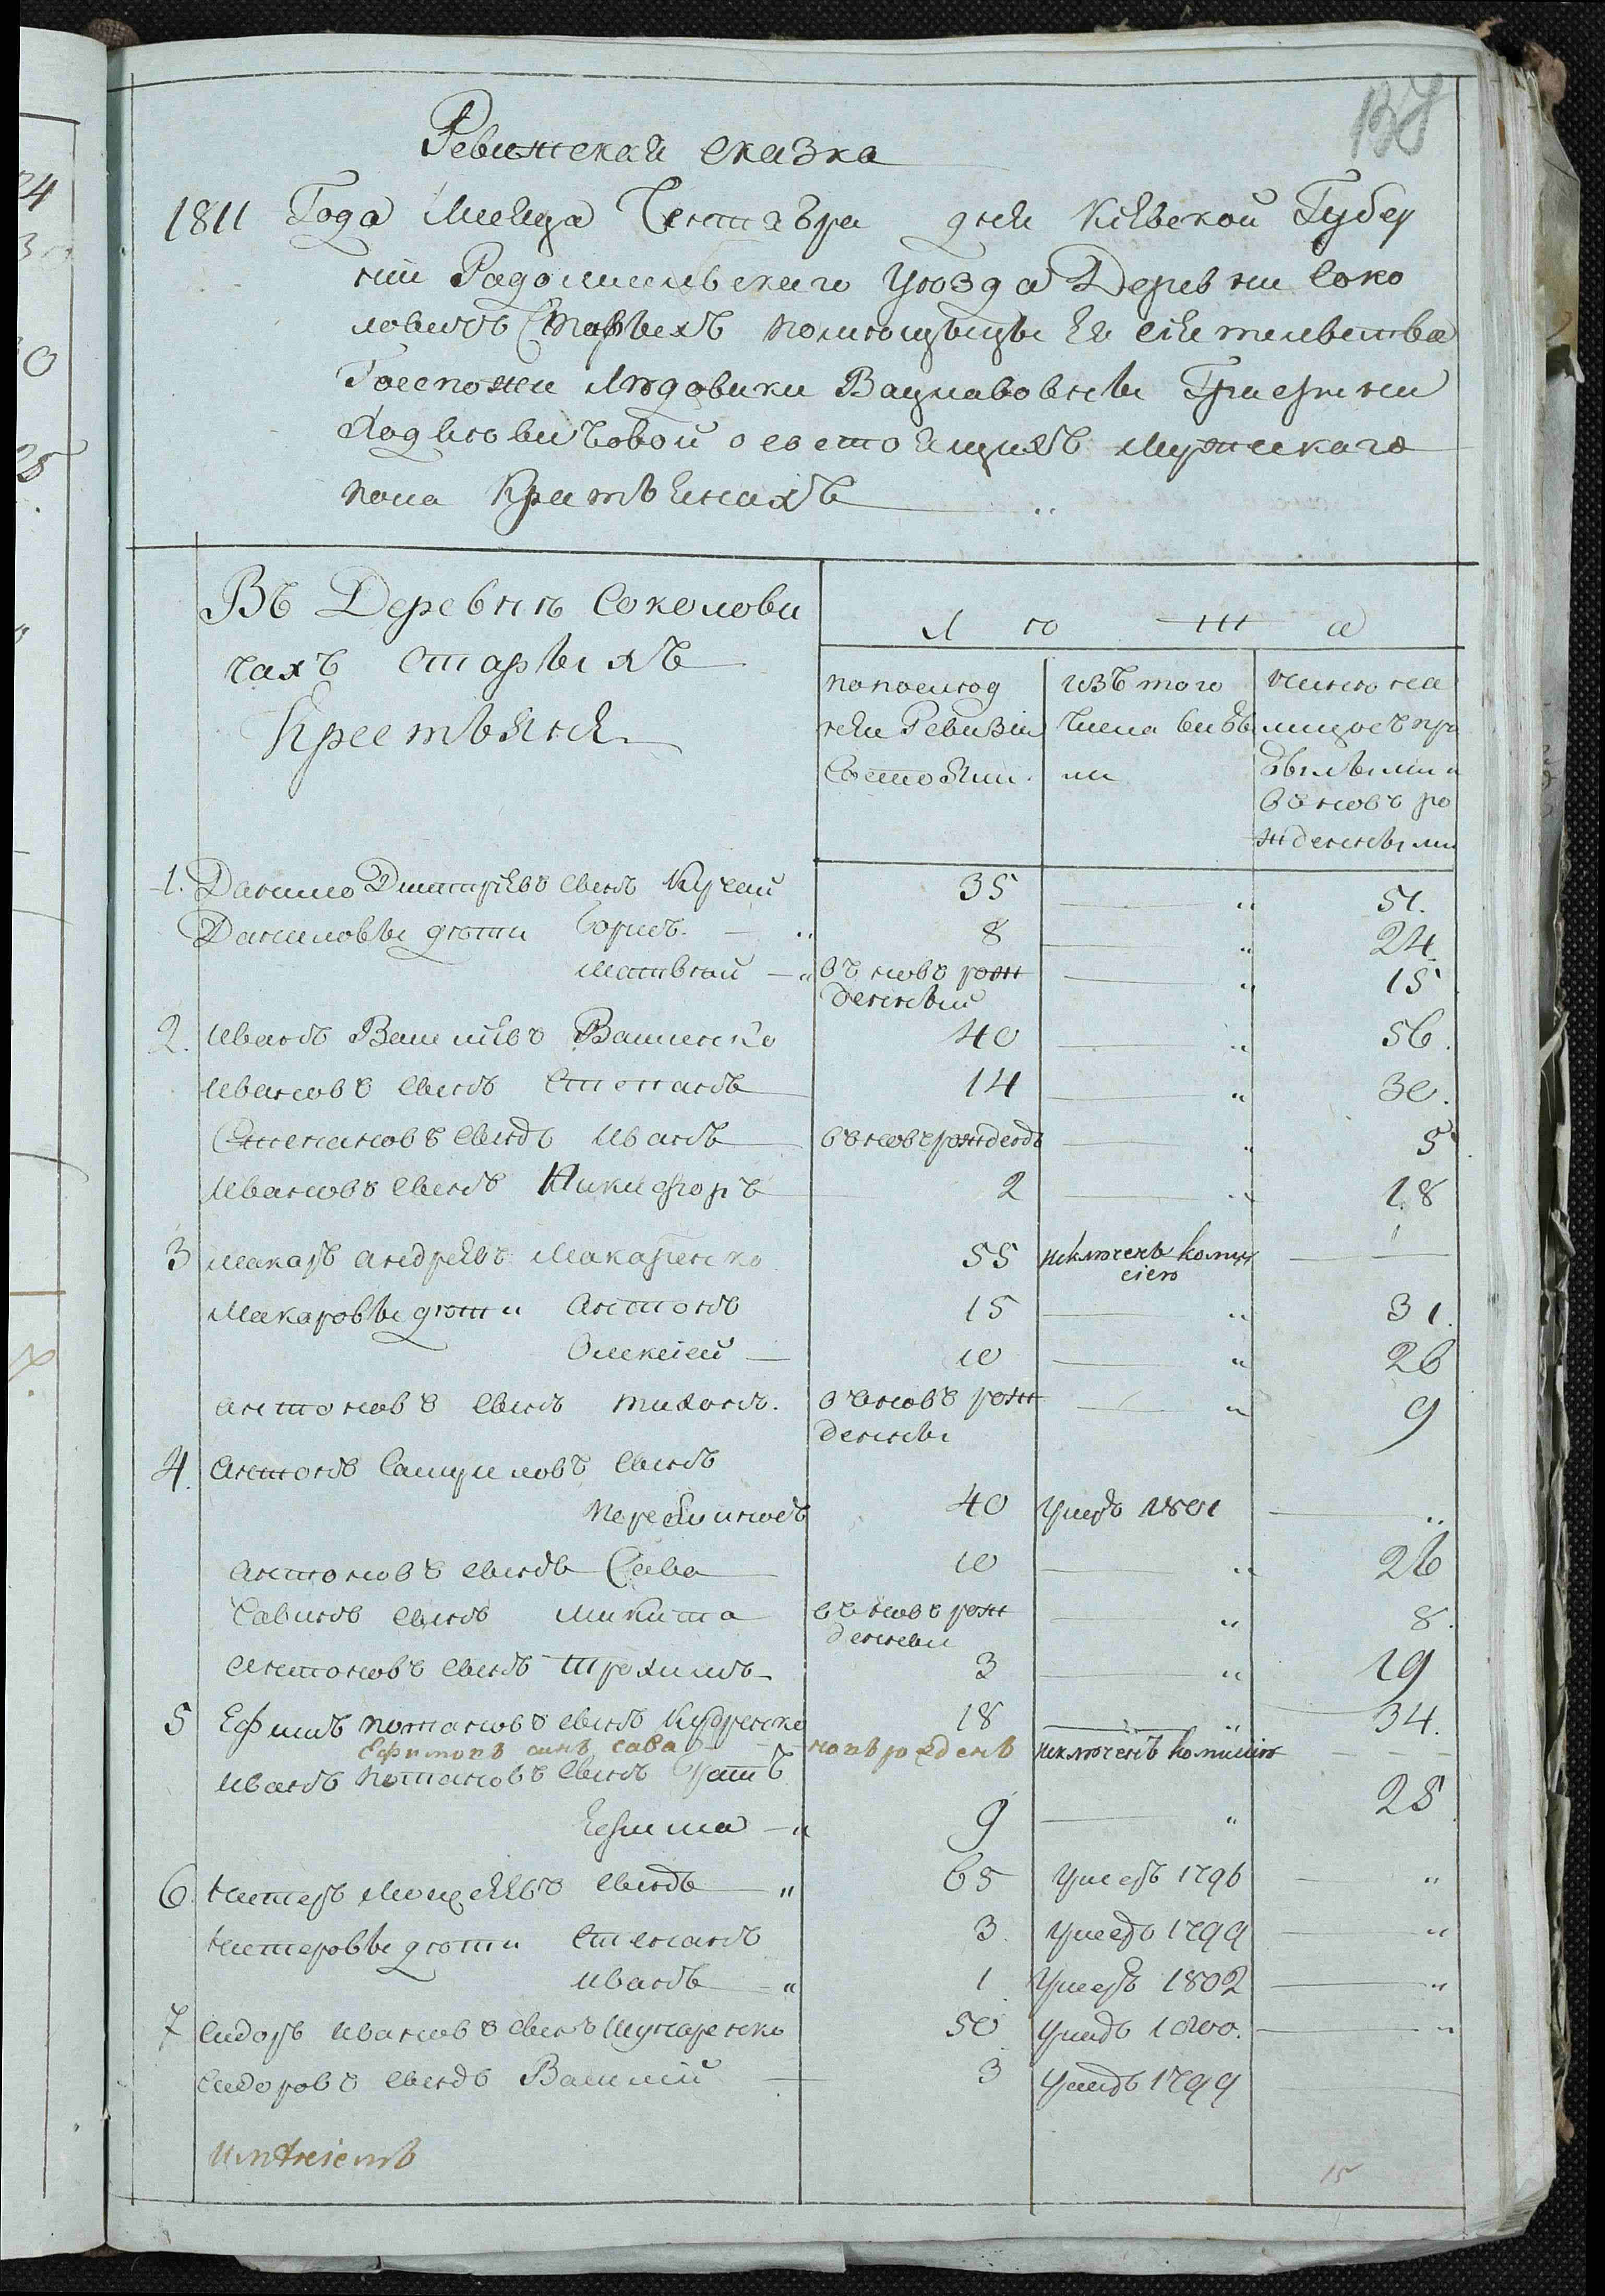 138
Ревижская сказка
1811 Года Месяца Сентебря дня Кіевской Губер
нии Радомишльскаго Уѣзда Деревни Соко
ловичъ Старыхъ помѣщыцы Ея сіятельства
Госпожи Людовики Вацлавовны Графини
Ходкѣвичовой о состоящихъ мужескаго
пола Крестьянахъ
Въ Деревнѣ Соколови
чахъ Старыхъ
Крестьяня
Л ѣ т а
по послѣд
ней Ревизіи
Состояли
изъ того
числа выбы
ли
нынѣ на
лицо съ при
былыми и
вновъ ро
жденными
1. Данило Дмитріевъ сынъ Кучай 35 " 51.
Даниловы дѣти Борисъ. " 8 " 24
Матвѣй " въ новъ рож
денный " 15
2. Иванъ Василіевъ Василенко 40 " 56.
Ивановъ сынъ Степанъ 14 " 30.
Степановъ сынъ Иванъ въ новъ рожденъ " 5
Ивановъ сынъ Никифоръ 2 " 18
3 Макаръ Андреевъ Макаренко 55 исключенъ комис
сіею
Макаровы дѣти Антонъ 15 " 31.
Олексіей 10 " 26
Антоновъ сынъ Тихонъ. въ новъ рож
денны " 9
4. Антонъ Самуиловъ сынъ
40 умеръ 1801 "
Антоновъ сынъ Сава 10 " 26
Савинъ сынъ Микита въ новъ рож
денны " 8.
Антоновъ сынъ Трохимъ 3 " 19
5 Ефимъ Потаповъ сынъ Кудренко 18 " 34.
Ефимовъ синъ сава новъ рожденъ исключенъ комисіею
Иванъ Потаповъ сынъ братъ
Ефима " 9 " 25
6. Нестеръ сынъ " 65 умеръ 1796 "
Нестеровы дѣти Степанъ 3. умеръ 1799 "
Иванъ " 1 умеръ 1802 "
7 Сидоръ Ивановъ сынъ 50 умеръ 1800. "
Сидоровъ сынъ Василій 3 умеръ 1799
15